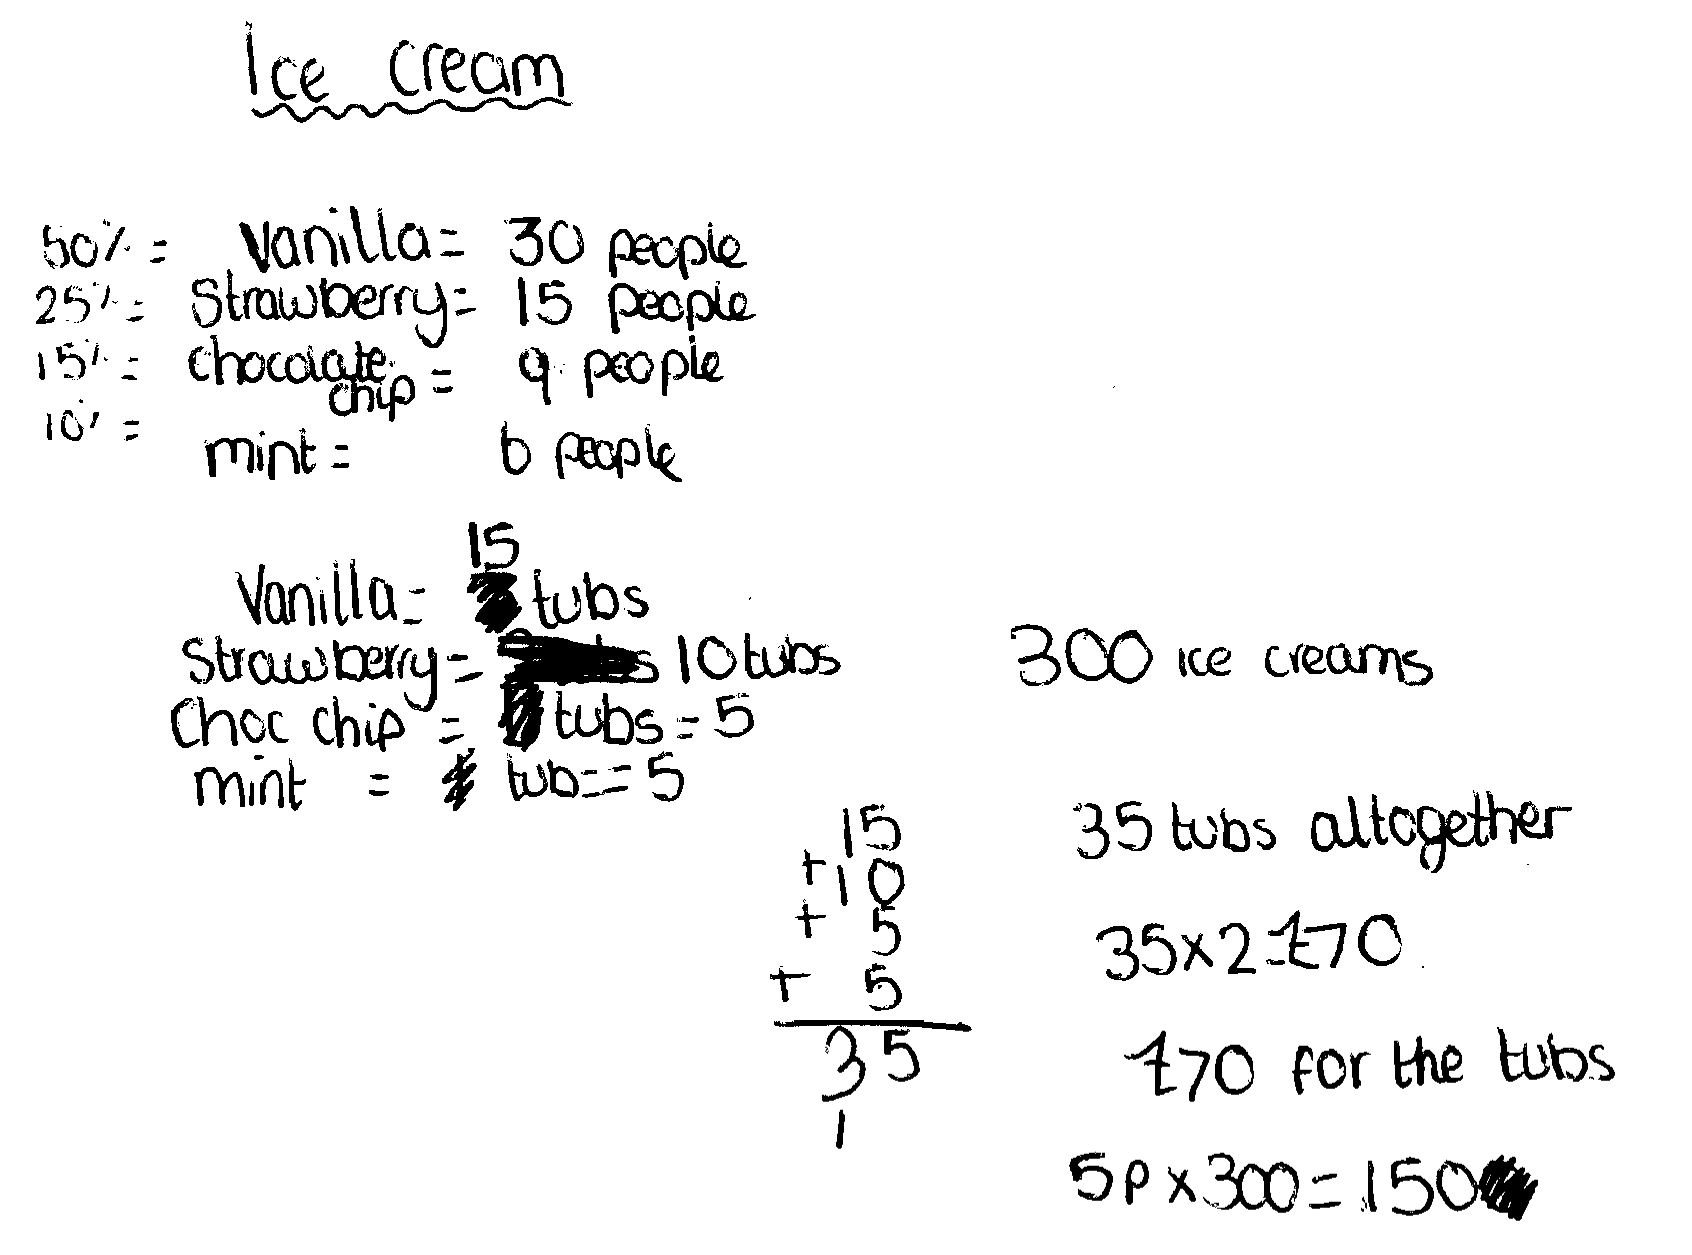 Ice cream
50% = Vanilla = 30 people
25% = Strawberry = 15 people
15% = chocolate chip = 9 people
10% = mint = 6 people
15
Vanilla = tubs
Strawberry = 10 tubs
Choc chip = tubs = 5
mint = tub = 5
300 ice creams
15
+ 10
+ 5
+ 5
35
1
35 tubs altogether
35 x 2 = £70
£70 for the tubs
5p x 300 = 150